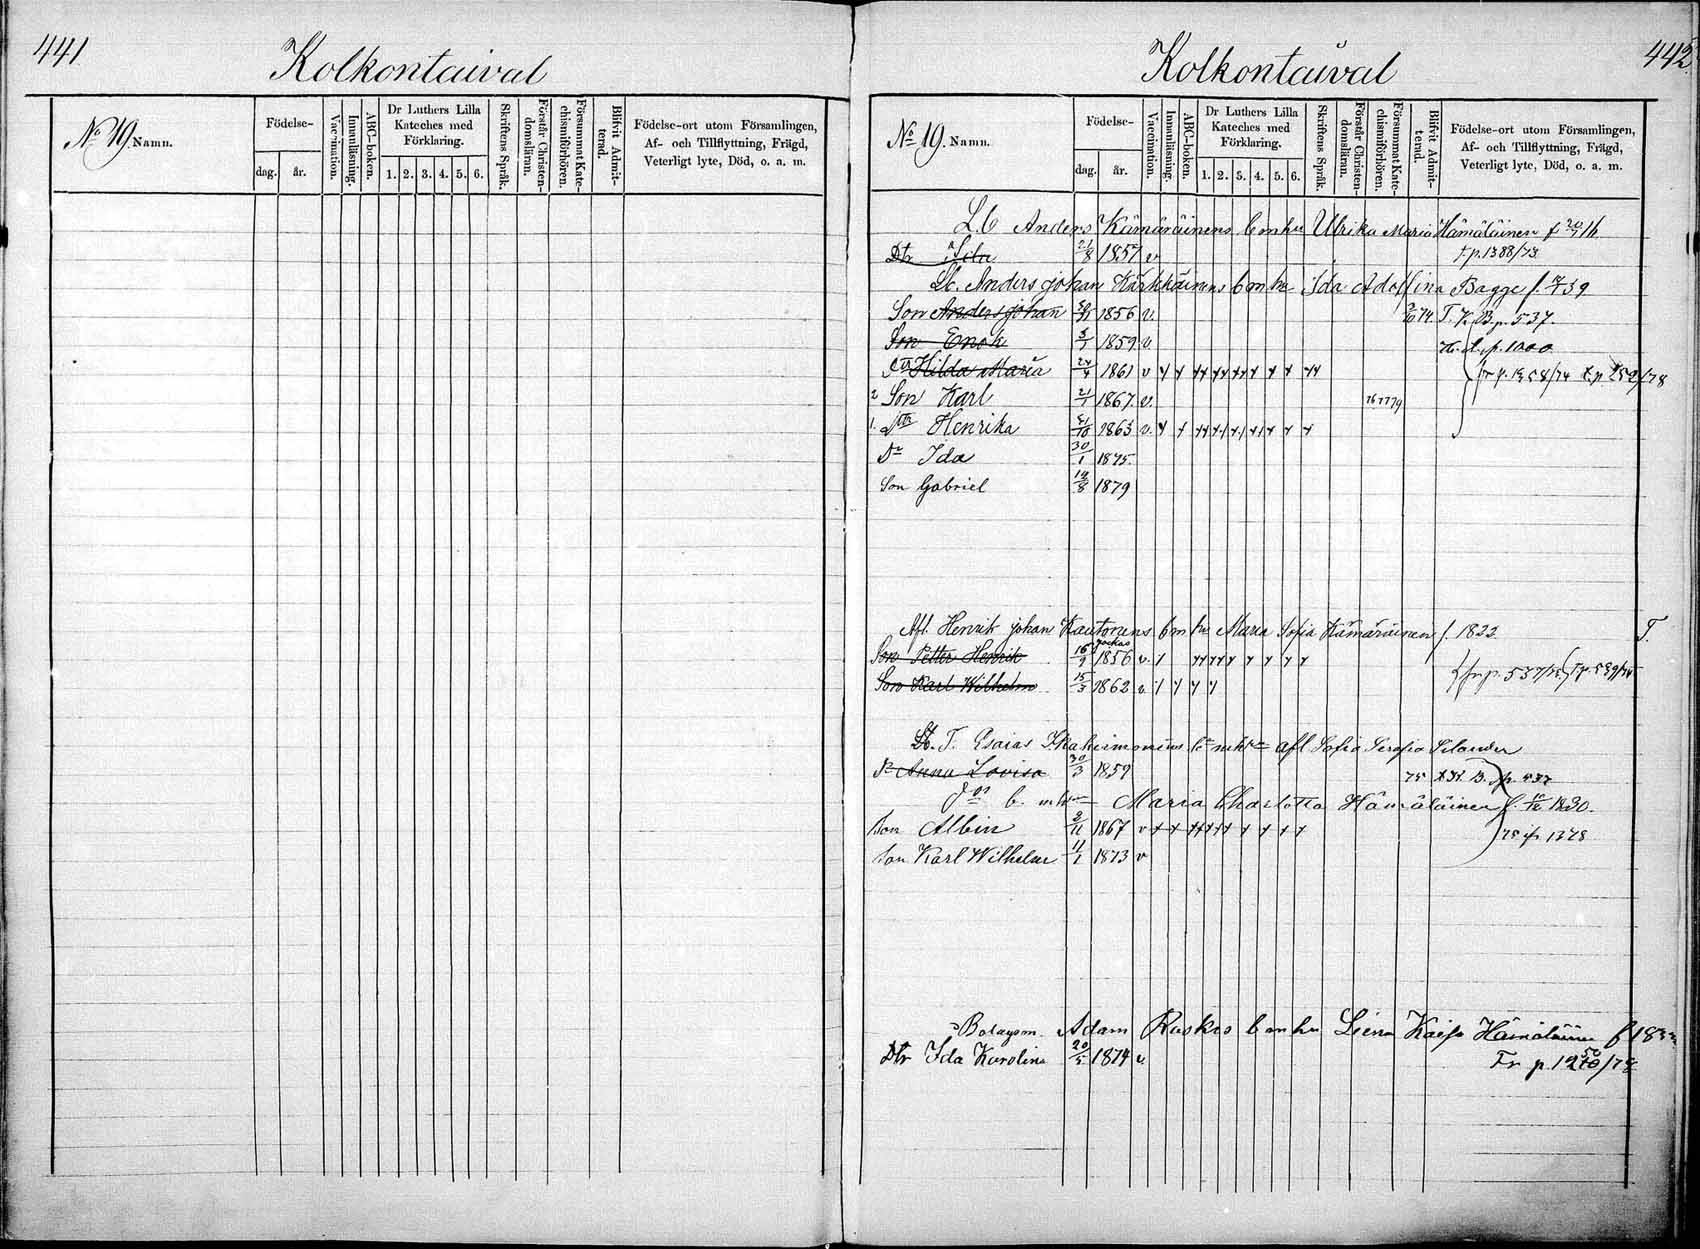 441
Kolkontaival
No 19. Namn.
Födelse-
dag. år.
Vaccination.
Innanläsning.
ABC-boken.
Dr Luthers Lilla
Kateches med
Förklaring.
1. 2. 3. 4. 5. 6.
Skriftens Språk.
Förstår Christen-
domslären.
Försummat Kate-
chismiförhören.
Blifvit Admit-
terad.
Födelse-ort utom Församlingen,
Af- och Tillflyttning, Frägd,
Veterligt lyte, Död, o. a. m.
442
Kolkontaival
No 19. Namn.
Födelse-
dag. år.
Vaccination.
Innanläsning.
ABC-boken.
Dr Luthers Lilla
Kateches med
Förklaring.
1. 2. 3. 4. 5. 6.
Skriftens Språk.
Förstår Christen-
domslären.
Försummat Kate-
chismiförhören.
Blifvit Admit-
terad.
Födelse-ort utom Församlingen,
Af- och Tillflyttning, Frägd,
Veterligt lyte, Död, o. a. m.
Anders Kämäräinens b m hu Ulrika Maria Hämäläinen f 20/7 16
Dtr Ida 21/8 1857 v t.p. 1388/73.
Anders Johan Kärkkäinens b m hu Ida Adolfina Bagge f. 39
Son Anders Johan 1856 v. 74. T. K. B. p. 537.
Son Enok 1859 v p. 1000
Dtr Hilda Maria 24/4 1861 v
2 Son Karl 21/1 1867 v.
1. Dtr Henrika 31/10 1863 v.
Dr Ida 30/1 1875.
Son Gabriel 14/8 1879
Afl. Henrik Johan Kautonens b m hu Maria Sofia Kämäräinen f. 1822 T.
Son Petter Henrik 16/9 1856 v.
Son Karl Wilhelm 15/3 1862 v. fr p. 537/75
T. Esaias Ikäheimonens b m hu afl Sofia Serafia Selander
Dr Anna Lovisa 30/3 1859 75 t. K. B. p. 537
b. m hu Maria Charlotta Hämäläinen f. 1830.
Son Albin 2/11 1867 v
Son Karl Wilhelm 11/1 1873 v
Bolagsm. Adam Ruskos b m hu Liena Kaisa Hämäläinen f 18
Dtr Ida Karolina 20/5 1874 v.
Fr p. 12